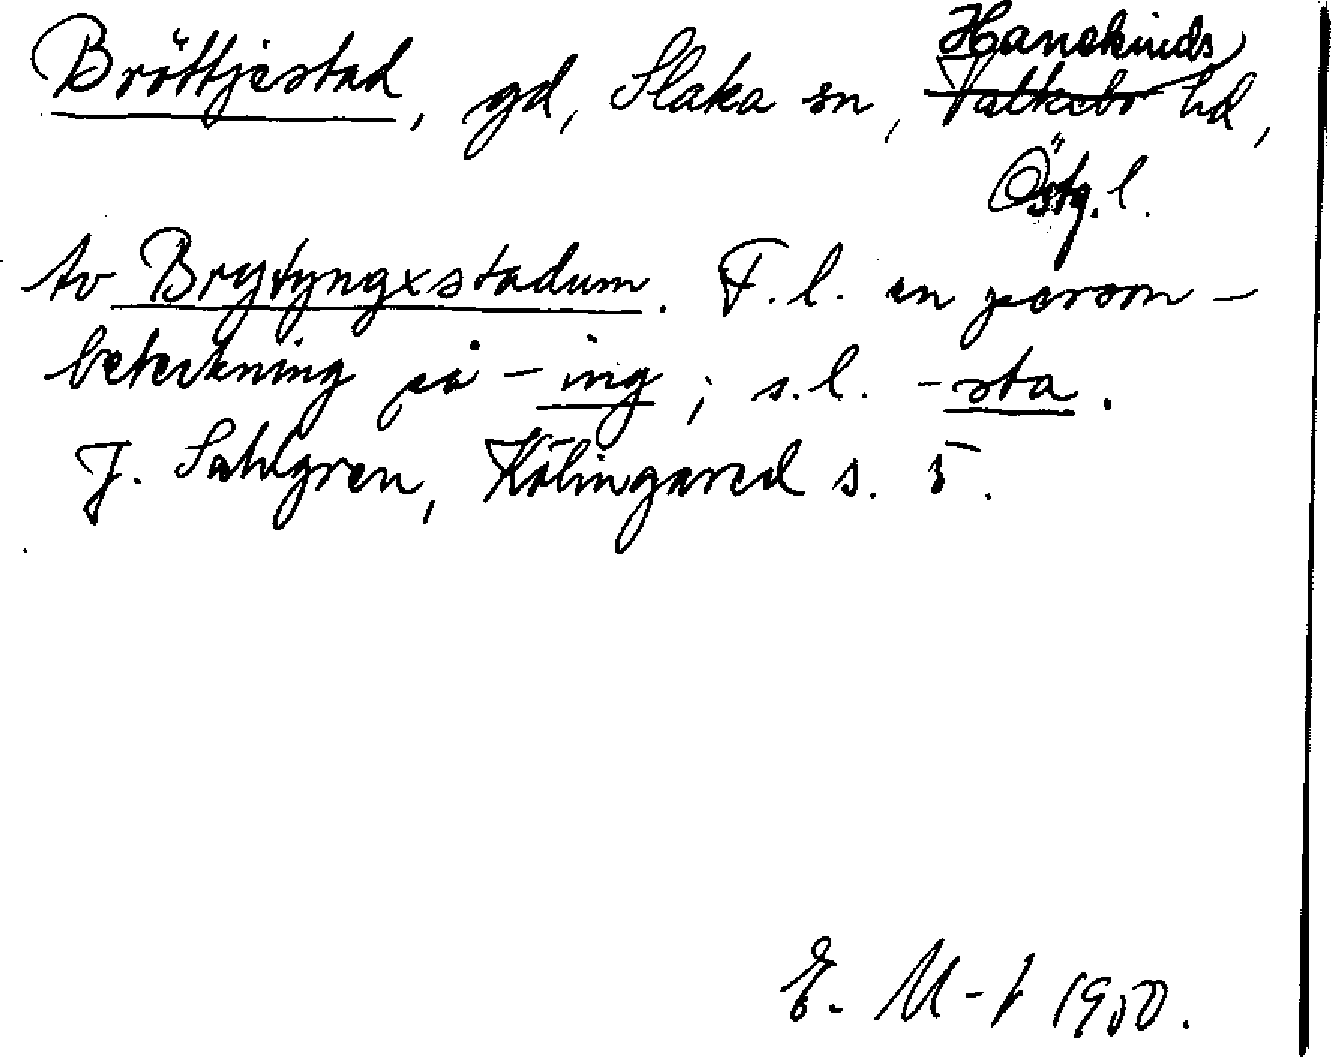 Hanekinds
Bröttjestad, gd, Slaka sn, Valkebo hd,
Östg. l.
av Brytyngxstadum. F.l. en person-
beteckning på -ing; s.l. -sta.
J. Sahlgren, Kölingared s. 5.
E. M-t 1950.